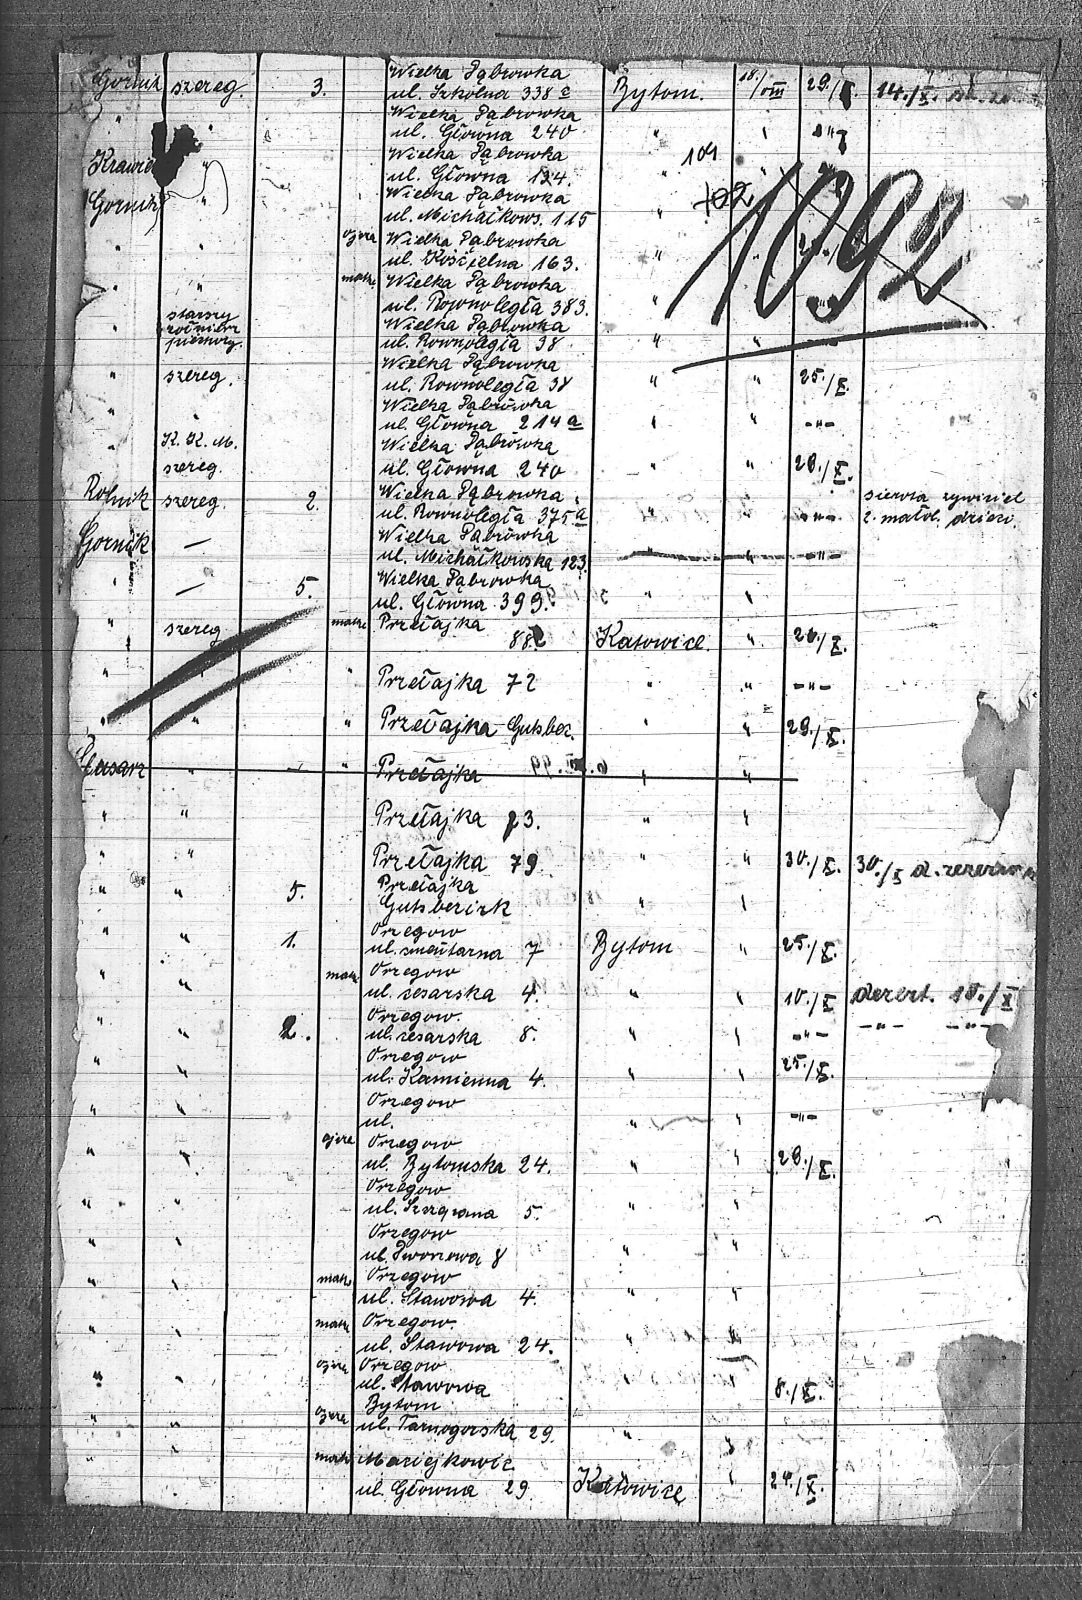 Gornik szereg. 3. Wielka Dąbrowka
ul. Szkolna 338 c Bytom. 18./VIII 29./X. 14./X.
" " Wielka Dąbrowka
ul. Głowna 240 " " -"-
Krawie " Wielka Dąbrowka 109
ul. Głowna 134. "
Gornik " Wielka Dąbrowka 102
ul. Michałkows. 115 "
1092
" " ojca Wielka Dąbrowka
ul. Kościelna 163. "
" " matk. Wielka Dąbrowka
ul. Rownoległa 383. "
" starszy Wielka Dąbrowka
ul. Rownoległa 38 " "
" szereg. Wielka Dąbrowka
ul. Rownoległa 38 " " 25./X.
" Wielka Dąbrówka
ul. Głowna 214 a " " -"-
" K. K. M. Wielka Dąbrówka
szereg. ul. Głowna 240 " " 28./X.
Rolnik szereg. 2. Wielka Dąbrowka
ul. Rownoległa 375 a " " -"- 2. małol. dzieci.
Gornik — Wielka Dąbrówka
ul. Michałkowska 123. " " -"-
" — 5. Wielka Dąbrowka
ul. Głowna 399. " "
" szereg matki Przełajka
88 Katowice. " 26./X.
" " " Przełajka 72 " " -"-
" " " Przełajka Gutsbez. " " 29./X.
Ślusarz " — " Przełajka " "
" " Przełajka 23. " "
" " Przełajka 79 " " 30./X. 30./X d. rezerw
" " 5. Przełajka
Gutsbezirk " "
" " 1. Orzegow
ul. smentarna 7 Bytom " 25./X.
" " matk. Orzegow
ul. cesarska 4. " " 10./X dezert. 10./X
" " 2. Orzegow.
ul. cesarska 8. " " -"- -"- -"-
" " Orzegow
ul. Kamienna 4. " " 25./X.
" " Orzegow
ul. " " -"-
" " ojca Orzegow
ul. Bytomska 24. " " 28./X.
" " Orzegow
ul. 5. " "
" " Orzegow
ul. Dworcowa 8 " "
" " matk. Orzegow
ul. Stawowa 4. " "
" " matki Orzegow.
ul. Stawowa 24. " "
" " ojca Orzegow
ul. Stawowa " " 8./X.
" " ojca Bytom
ul. Tarnogorska 29. " "
" " matki Maciejkowic
ul. Głowna 29 Katowice " 24./X.